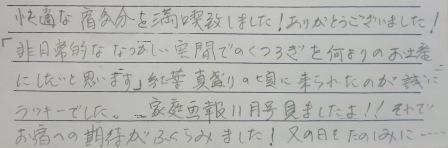 快適な宿気分を満喫致しました!ありがとうございました!
「非日常的ななつかしい空間でのくつろぎを何よりのお土産
にしたいと思います」紅葉真盛りの頃に来られたのが誠に
ラッキーでした。家庭画報11月号見ましたよ!!それで
お宿への期待がふくらみました!又の日をたのしみに……